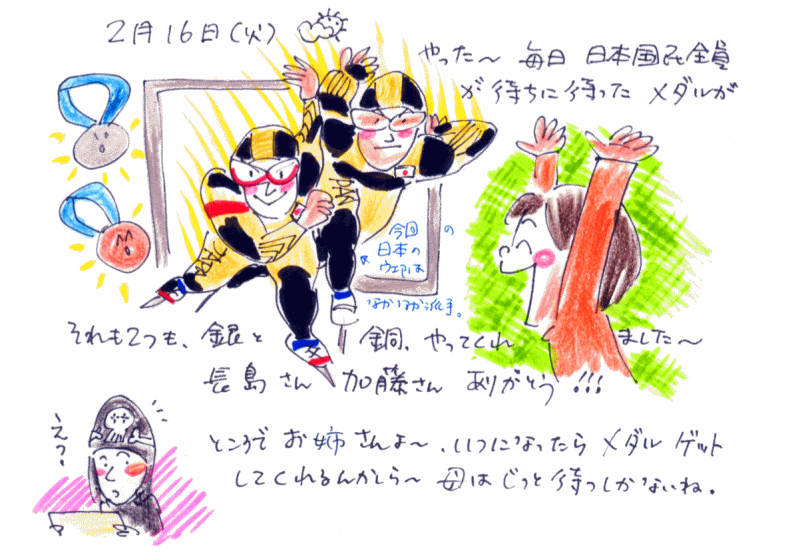 2月16日(火)
やった〜 毎日 日本国民全員
が 待ちに待った メダルが
今回の
日本の
ウエアは
なかなか派手。
それも2つも、銀と 銅、やってくれ ました〜
長島さん 加藤さん ありがとう!!!
えっ!
ところで お姉さんよ〜、いつになったら メダル ゲット
してくれるんかしら〜 母は じっと待つしかないね。